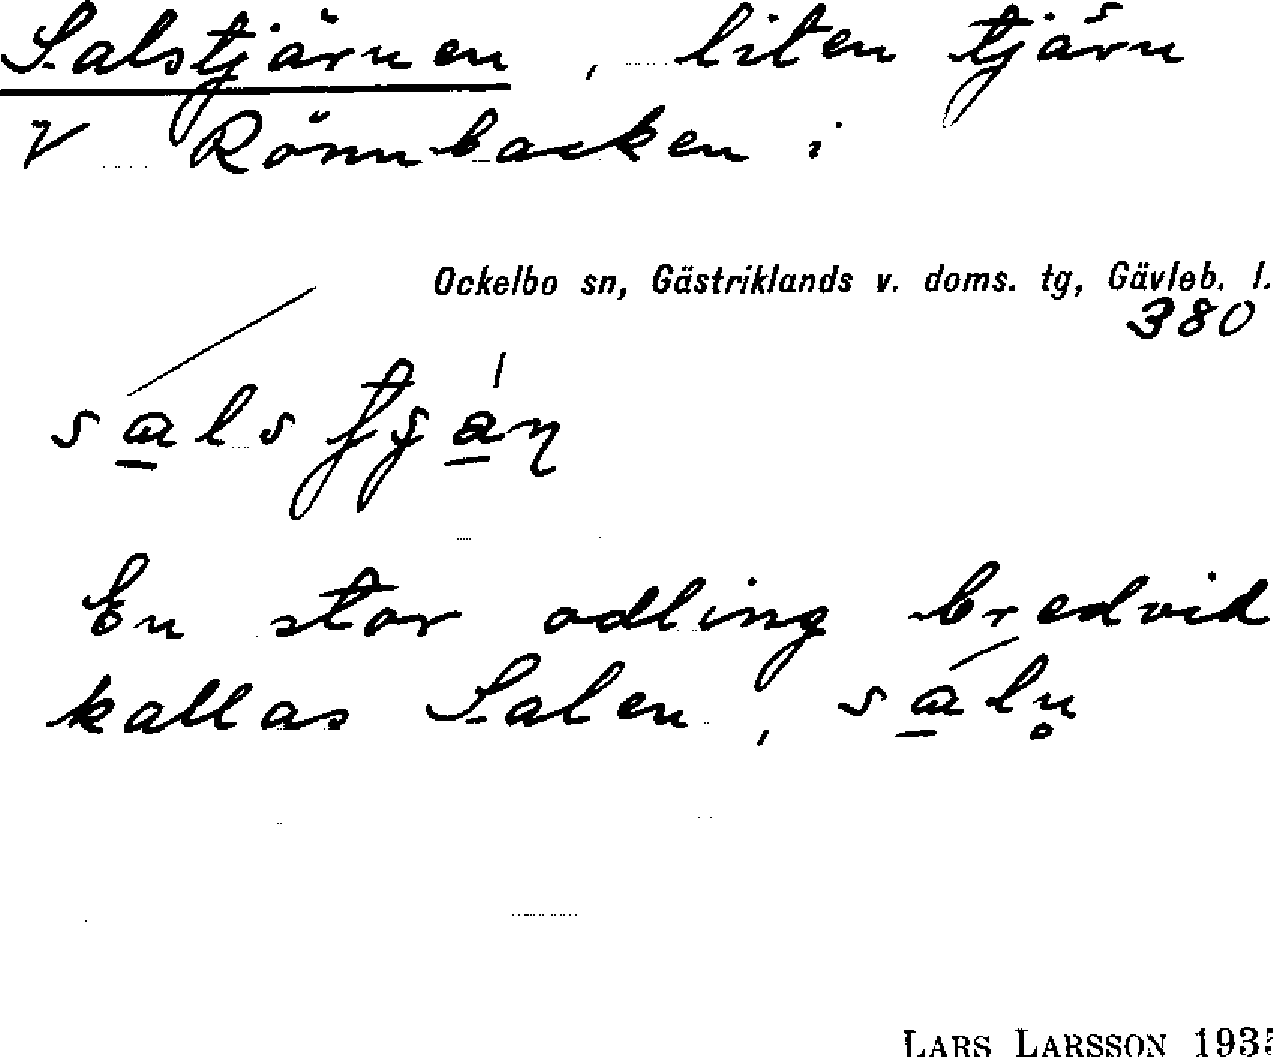 Salstjärnen, liten tjärn
V Rönnbacken i
Ockelbo sn, Gästriklands v. doms. tg, Gävleb. l.
380
En stor odling bredvid
kallas Salen,
LARS LARSSON 1935